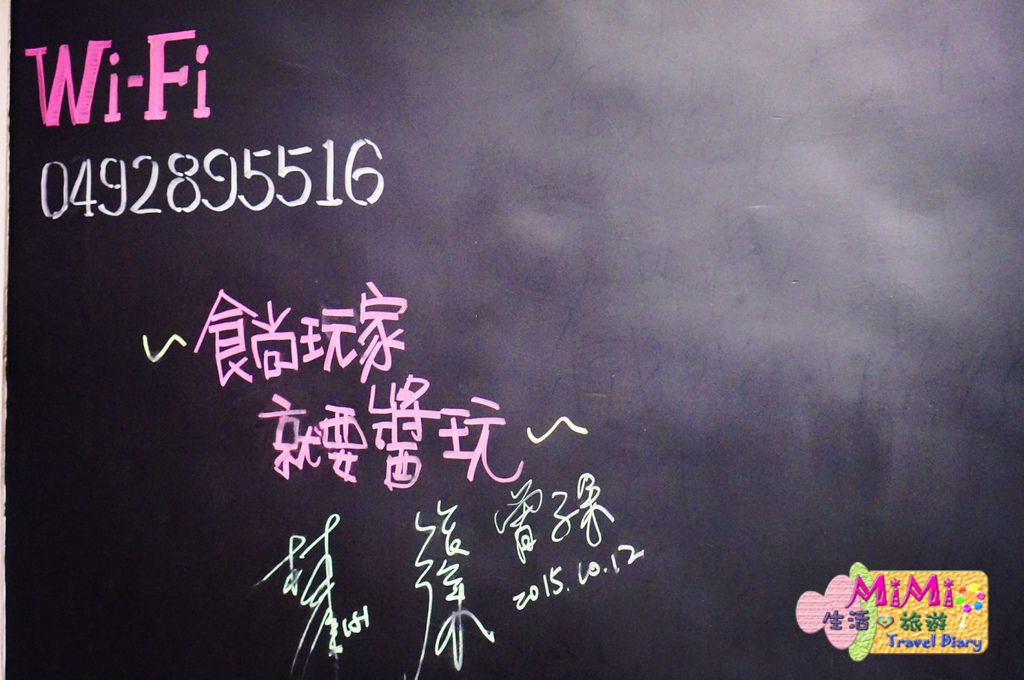 Wi-Fi
0492895516
~食尚玩家
就要醬玩~
曾子余
2015.10.12
MiMi
生活 旅遊
Travel Diary